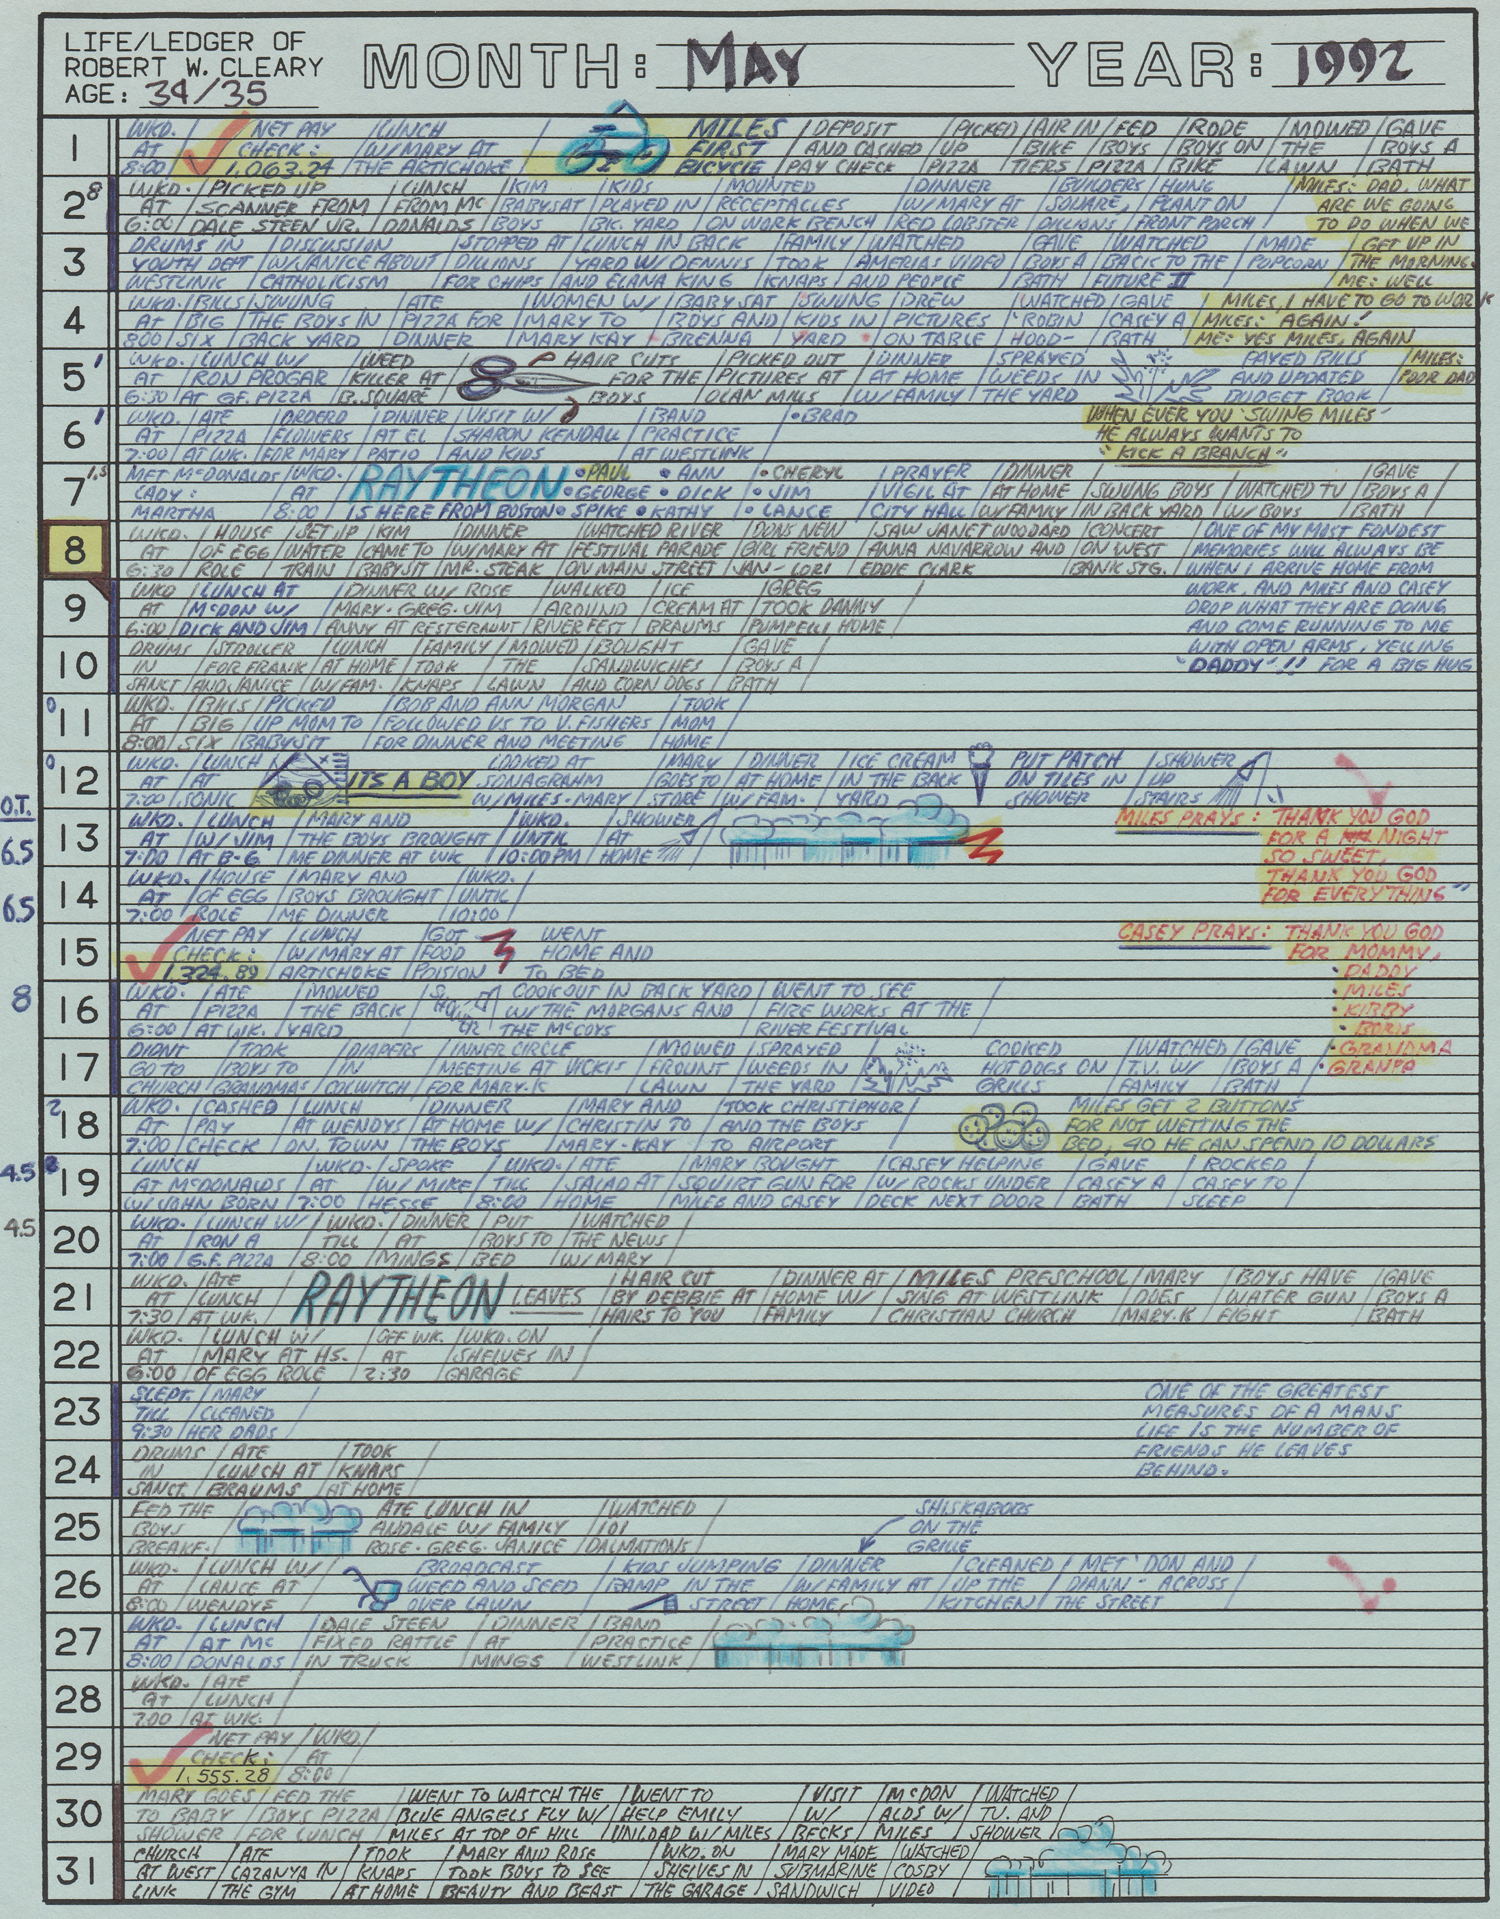 LIFE/LEDGER OF
ROBERT W. CLEARY
AGE: 34/35
MONTH: MAY
YEAR: 1992
1
WKD. / NET PAY / LUNCH / MILES / DEPOSIT / PICKED / AIR IN / FED / RODE / MOWED / GAVE
AT / CHECK: / W/MARY AT / FIRST / AND CASHED / UP / BIKE / BOYS / BOYS ON / THE / BOYS A
8:00 / 1,063.24 / THE ARTICHOKE / BICYCLE / PAY CHECK / PIZZA / TIERS / PIZZA / BIKE / LAWN / BATH
2 8
WKD. / PICKED UP / LUNCH / KIM / KIDS / MOUNTED / DINNER / BUILDERS / HUNG
AT / SCANNER FROM / FROM MC / BABYSAT / PLAYED IN / RECEPTACLES / W/MARY AT / SQUARE, / PLANT ON
6:00 / DALE STEEN JR. / DONALDS / BOYS / BK. YARD / ON WORK BENCH / RED LOBSTER / DILLIONS / FRONT PORCH
MILES: DAD, WHAT
ARE WE GOING
TO DO WHEN WE
GET UP IN
THE MORNING.
ME: WELL
MILES, I HAVE TO GO TO WORK
MILES: AGAIN!
ME: YES MILES, AGAIN
MILES:
POOR DAD
3
DRUMS IN / DISCUSSION / STOPPED AT / LUNCH IN BACK / FAMILY / WATCHED / GAVE / WATCHED / MADE
YOUTH DEPT / W/JANICE ABOUT / DILLIONS / YARD W/ DENNIS / TOOK / AMERIAS VIDEO / BOYS A / BACK TO THE / POPCORN
WESTLINK / CATHOLICISM / FOR CHIPS / AND ELANA KING / KNAPS / AND PEOPLE / BATH / FUTURE II
4
WKD. / BILLS / SWUNG / ATE / WOMEN W/ / BABYSAT / SWUNG / DREW / WATCHED / GAVE
AT / BIG / THE BOYS IN / PIZZA FOR / MARY TO / BOYS AND / KIDS IN / PICTURES / "ROBIN / CASEY A
800 / SIX / BACK YARD / DINNER / MARY KAY / BRENNA / YARD / ON TABLE / HOOD- / BATH
5 1
WKD. / LUNCH W/ / WEED / HAIR CUTS / PICKED OUT / DINNER / SPRAYED / PAYED BILLS
AT / RON PROGAR / KILLER AT / FOR THE / PICTURES AT / AT HOME / WEEDS IN / AND UPDATED
6:30 / AT GF. PIZZA / B.SQUARE / BOYS / OLAN MILLS / W/FAMILY / THE YARD / BUDGET BOOK
6 1
WKD. / ATE / ORDERD / DINNER / VISIT W/ / BAND • BRAD
AT / PIZZA / FLOWERS / AT EL / SHARON KENDALL / PRACTICE
7:00 / AT WK. / FOR MARY / PATIO / AND KIDS / AT WESTLINK
WHEN EVER YOU SWING MILES
HE ALWAYS WANTS TO
"KICK A BRANCH"
7 1.5
MET MCDONALDS / WKD. / RAYTHEON • PAUL • ANN • CHERYL / PRAYER / DINNER / GAVE
LADY: / AT • GEORGE • DICK • JIM / VIGIL AT / AT HOME / SWUNG BOYS / WATCHED TV / BOYS A
MARTHA / 8:00 / IS HERE FROM BOSTON • SPIKE • KATHY • LANCE / CITY HALL / W/FAMILY / IN BACK YARD / W/ BOYS / BATH
8
WKD. / HOUSE / SET UP / KIM / DINNER / WATCHED RIVER / DONS NEW / SAW JANET WOODARD / CONCERT
AT / OF EGG / WATER / CAME TO / W/MARY AT / FESTIVAL PARADE / GIRL FRIEND / ANNA NAVARROW AND / ON WEST
6:30 / ROLE / TRAIN / BABYSIT / MR. STEAK / ON MAIN STREET / JAN-LORI / EDDIE CLARK / BANK STG.
ONE OF MY MOST FONDEST
MEMORIES WILL ALWAYS BE
WHEN I ARRIVE HOME FROM
WORK, AND MILES AND CASEY
DROP WHAT THEY ARE DOING
AND COME RUNNING TO ME
WITH OPEN ARMS, YELLING
"DADDY"!! FOR A BIG HUG
9
WKD / LUNCH AT / DINNER W/ ROSE / WALKED / ICE / GREG
AT / MCDON W/ / MARY-GREG-JIM / AROUND / CREAM AT / TOOK DANNY
6:00 / DICK AND JIM / ANNY AT RESTERAUNT / RIVERFEST / BRAUMS / PUMPELLI HOME
10
DRUMS / STROLLER / LUNCH / FAMILY / MOWED / BOUGHT / GAVE
IN / FOR FRANK / AT HOME / TOOK / THE / SANDWICHES / BOYS A
SANCT / AND JANICE / W/FAM. / KNAPS / LAWN / AND CORN DOGS / BATH
0 11
WKD. / BILLS / PICKED / BOB AND ANN MORGAN / TOOK
AT / BIG / UP MOM TO / FOLLOWED US TO V. FISHERS / MOM
8:00 / SIX / BABYSIT / FOR DINNER AND MEETING / HOME
0 12
WKD. / LUNCH / LOOKED AT / MARY / DINNER / ICE CREAM / PUT PATCH / SHOWER
AT / AT / ITS A BOY / SONAGRAHM / GOES TO / AT HOME / IN THE BACK / ON TILES IN / UP
7:00 / SONIC / W/MILES-MARY / STORE / W/ FAM. / YARD / SHOWER / STAIRS
O.T.
6.5
13
WKD. / LUNCH / MARY AND / WKD. / SHOWER
AT / W/ JIM / THE BOYS BROUGHT / UNTIL / AT
7:00 / AT B-G / ME DINNER AT WK / 10:00PM / HOME
MILES PRAYS: THANK YOU GOD
FOR A NIGHT
SO SWEET,
THANK YOU GOD
FOR EVERYTHING"
6.5
14
WKD. / HOUSE / MARY AND / WKD.
AT / OF EGG / BOYS BROUGHT / UNTIL
7:00 / ROLE / ME DINNER / 10:00
15
NET PAY / LUNCH / GOT / WENT
CHECK: / W/MARY AT / FOOD / HOME AND
1,324.89 / ARTICHOKE / POISION / TO BED
CASEY PRAYS: THANK YOU GOD
FOR MOMMY,
• DADDY
• MILES
• KIRBY
• BORIS
• GRANDMA
• GRANPA
8
16
WKD. / ATE / MOWED / COOKOUT IN BACK YARD / WENT TO SEE
AT / PIZZA / THE BACK / W/THE MORGANS AND / FIRE WORKS AT THE
6:00 / AT WK. / YARD / THE MCCOYS / RIVER FESTIVAL
17
DIDNT / TOOK / DIAPERS / INNER CIRCLE / MOWED / SPRAYED / COOKED / WATCHED / GAVE
GO TO / BOYS TO / IN / MEETING AT VICKIS / FROUNT / WEEDS IN / HOT DOGS ON / T.V. W/ / BOYS A
CHURCH / GRANDMAS / COLWITCH / FOR MARY-K / LAWN / THE YARD / GRILLS / FAMILY / BATH
2 18
WKD. / CASHED / LUNCH / DINNER / MARY AND / TOOK CHRISTIPHOR
AT / PAY / AT WENDYS / AT HOME W/ / CHRISTIN TO / AND THE BOYS
7:00 / CHECK / DN. TOWN / THE BOYS / MARY-KAY / TO AIRPORT
MILES GET 2 BUTTONS
FOR NOT WETTING THE
BED, 40 HE CAN SPEND 10 DOLLARS
4.5
19
LUNCH / WKD. / SPOKE / WKD. / ATE / MARY BOUGHT / CASEY HELPING / GAVE / ROCKED
AT MCDONALDS / AT / W/ MIKE / TILL / SALAD AT / SQUIRT GUN FOR / W/ ROCKS UNDER / CASEY A / CASEY TO
W/ JOHN BORN / 7:00 / HESSE / 8:00 / HOME / MILES AND CASEY / DECK NEXT DOOR / BATH / SLEEP
4.5
20
WKD. / LUNCH W/ / WKD. / DINNER / PUT / WATCHED
AT / RON A / TILL / AT / BOYS TO / THE NEWS
7:00 / G.F. PIZZA / 8:00 / MINGS / BED / W/ MARY
21
WKD. / ATE / RAYTHEON / HAIR CUT / DINNER AT / MILES PRESCHOOL / MARY / BOYS HAVE / GAVE
AT / LUNCH / LEAVES / BY DEBBIE AT / HOME W/ / SING AT WESTLINK / DUES / WATER GUN / BOYS A
7:30 / AT WK. / HAIRS TO YOU / FAMILY / CHRISTIAN CHURCH / MARY-K / FIGHT / BATH
22
WKD. / LUNCH W/ / OFF WK. / WKD. ON
AT / MARY AT HS. / AT / SHELVES IN
6:00 / OF EGG ROLE / 2:30 / GARAGE
23
SLEPT / MARY
TILL / CLEANED
9:30 / HER DADS
ONE OF THE GREATEST
MEASURES OF A MANS
LIFE IS THE NUMBER OF
FRIENDS HE LEAVES
BEHIND.
24
DRUMS / ATE / TOOK
IN / LUNCH AT / KNAPS
SANCT. / BRAUMS / AT HOME
25
FED THE / ATE LUNCH IN / WATCHED / SHISKABOBS
BOYS / ANDALE W/ FAMILY / 101 / ON THE
BREAKF. / ROSE-GREG-JANICE / DALMATIONS / GRILLE
26
WKD. / LUNCH W/ / BROADCAST / KIDS JUMPING / DINNER / CLEANED / MET DON AND
AT / LANCE AT / WEED AND SEED / RAMP IN THE / W/FAMILY AT / UP THE / DIANN - ACROSS
8:00 / WENDYS / OVER LAWN / STREET / HOME / KITCHEN / THE STREET
27
WKD. / LUNCH / DALE STEEN / DINNER / BAND
AT / AT MC / FIXED RATTLE / AT / PRACTICE
8:00 / DONALDS / IN TRUCK / MINGS / WESTLINK
28
WKD. / ATE
AT / LUNCH
7:00 / AT WK.
29
NET PAY / WKD.
CHECK: / AT
1,555.28 / 8:00
30
MARY GOES / FED THE / WENT TO WATCH THE / WENT TO / VISIT / MCDON / WATCHED
TO BABY / BOYS PIZZA / BLUE ANGELS FLY W/ / HELP EMILY / W/ / ALDS W/ / TV. AND
SHOWER / FOR LUNCH / MILES AT TOP OF HILL / UNLOAD W/ MILES / BECKS / MILES / SHOWER
31
CHURCH / ATE / TOOK / MARY AND ROSE / WKD. ON / MARY MADE / WATCHED
AT WEST / LAZANYA IN / KNAPS / TOOK BOYS TO SEE / SHELVES IN / SUBMARINE / COSBY
LINK / THE GYM / AT HOME / BEAUTY AND BEAST / THE GARAGE / SANDWICH / VIDEO